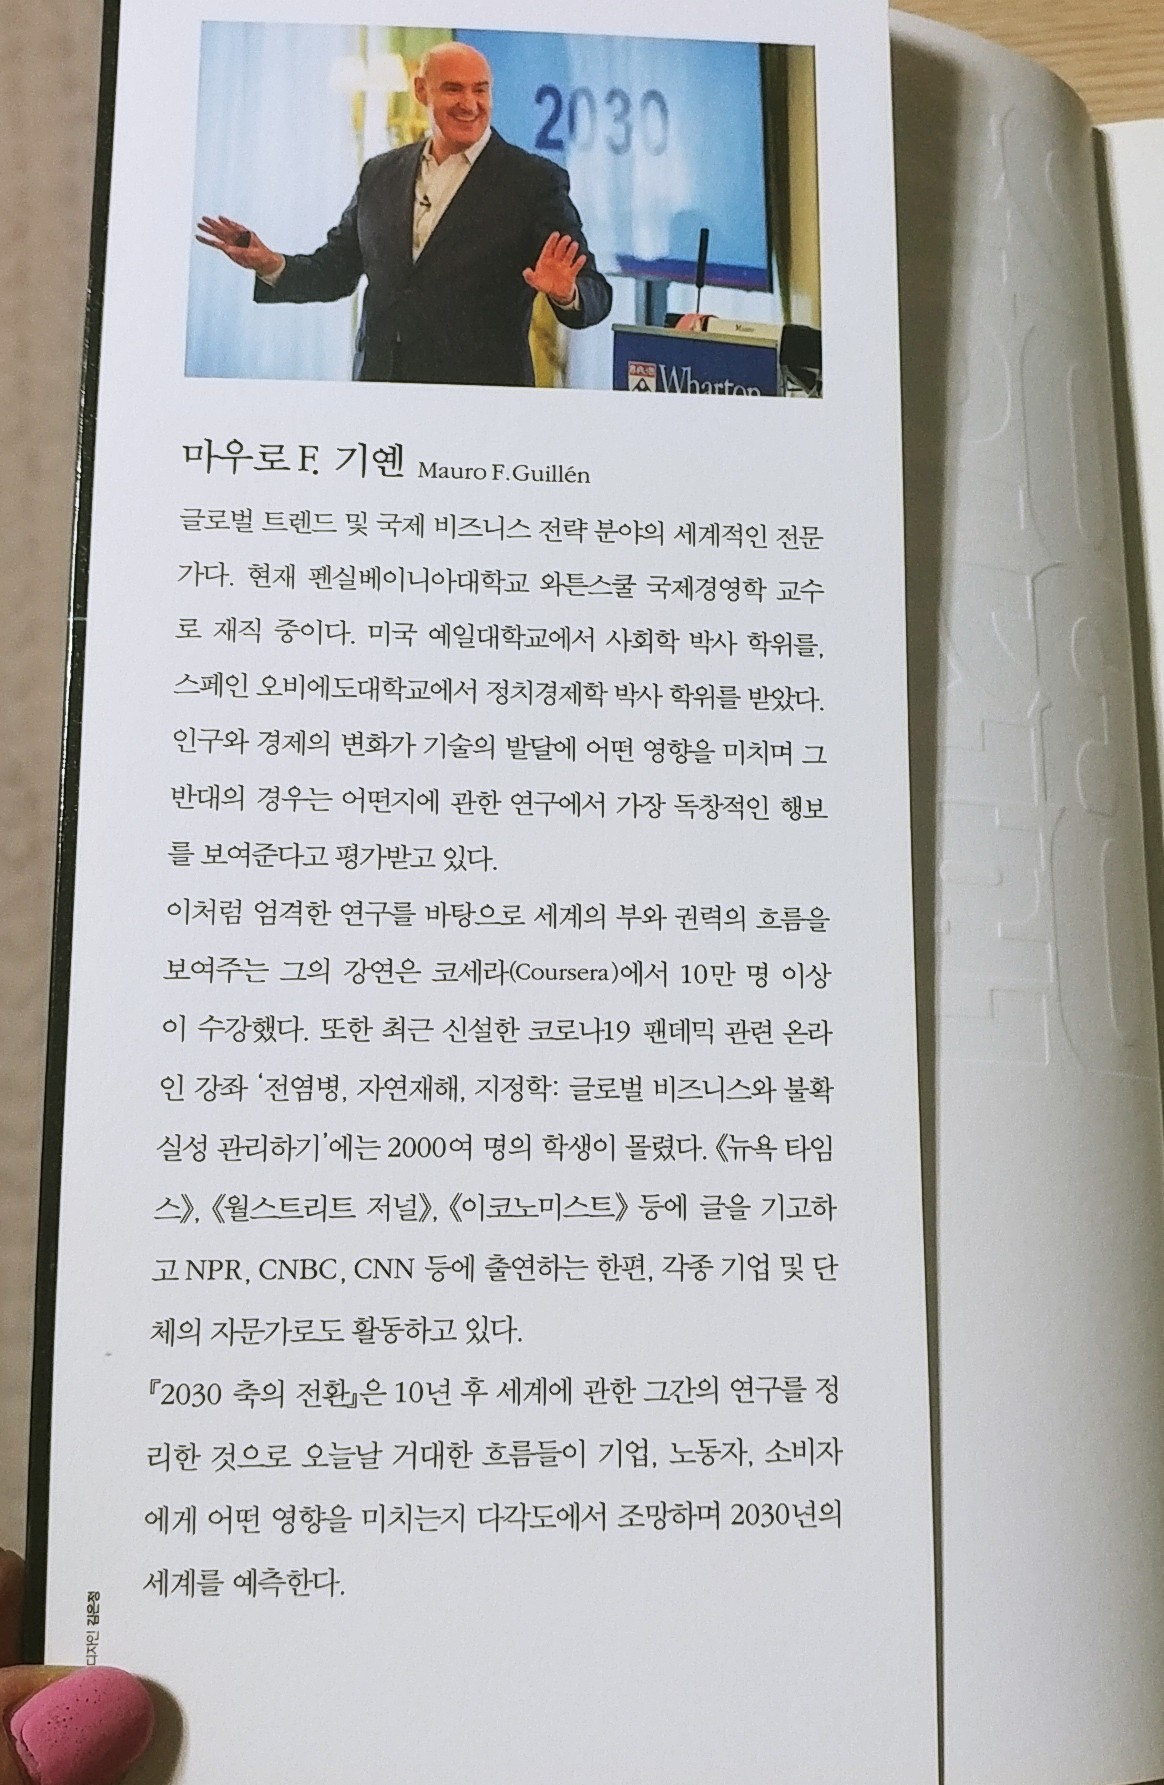 2030
Mauro
Wharton
마우로 F. 기옌 Mauro F. Guillén
글로벌 트렌드 및 국제 비즈니스 전략 분야의 세계적인 전문
가다. 현재 펜실베이니아대학교 와튼스쿨 국제경영학 교수
로 재직 중이다. 미국 예일대학교에서 사회학 박사 학위를,
스페인 오비에도대학교에서 정치경제학 박사 학위를 받았다.
인구와 경제의 변화가 기술의 발달에 어떤 영향을 미치며 그
반대의 경우는 어떤지에 관한 연구에서 가장 독창적인 행보
를 보여준다고 평가받고 있다.
이처럼 엄격한 연구를 바탕으로 세계의 부와 권력의 흐름을
보여주는 그의 강연은 코세라(Coursera)에서 10만 명 이상
이 수강했다. 또한 최근 신설한 코로나19 팬데믹 관련 온라
인 강좌 ‘전염병, 자연재해, 지정학: 글로벌 비즈니스와 불확
실성 관리하기’에는 2000여 명의 학생이 몰렸다. 《뉴욕 타임
스》, 《월스트리트 저널》, 《이코노미스트》 등에 글을 기고하
고 NPR, CNBC, CNN 등에 출연하는 한편, 각종 기업 및 단
체의 자문가로도 활동하고 있다.
『2030 축의 전환』은 10년 후 세계에 관한 그간의 연구를 정
리한 것으로 오늘날 거대한 흐름들이 기업, 노동자, 소비자
에게 어떤 영향을 미치는지 다각도에서 조망하며 2030년의
세계를 예측한다.
디자인 김은정